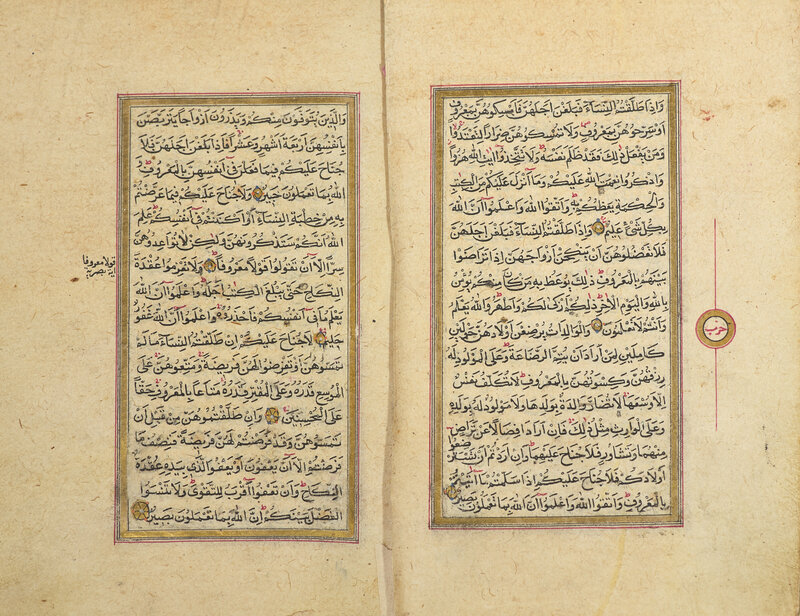 وَاِذَا طَلَّقْتُمُ النِّسَاءَ فَبَلَغْنَ اَجَلَهُنَّ فَاَمْسِكُوهُنَّ بِمَعْرُوفٍ
اَوْ سَرِّحُوهُنَّ بِمَعْرُوفٍ وَلَا تُمْسِكُوهُنَّ ضِرَارًا لِتَعْتَدُوا
وَمَنْ يَفْعَلْ ذٰلِكَ فَقَدْ ظَلَمَ نَفْسَهُ وَلَا تَتَّخِذُوا اٰيَاتِ اللهِ هُزُوًا
وَاذْكُرُوا نِعْمَةَ اللهِ عَلَيْكُمْ وَمَا اَنْزَلَ عَلَيْكُمْ مِنَ الْكِتَابِ
وَالْحِكْمَةِ يَعِظُكُمْ بِهِ وَاتَّقُوا اللهَ وَاعْلَمُوا اَنَّ اللهَ
بِكُلِّ شَيْءٍ عَلِيمٌ وَاِذَا طَلَّقْتُمُ النِّسَاءَ فَبَلَغْنَ اَجَلَهُنَّ
فَلَا تَعْضُلُوهُنَّ اَنْ يَنْكِحْنَ اَزْوَاجَهُنَّ اِذَا تَرَاضَوْا
بَيْنَهُمْ بِالْمَعْرُوفِ ذٰلِكَ يُوعَظُ بِهِ مَنْ كَانَ مِنْكُمْ يُؤْمِنُ
بِاللهِ وَالْيَوْمِ الْاٰخِرِ ذٰلِكُمْ اَزْكٰى لَكُمْ وَاَطْهَرُ وَاللهُ يَعْلَمُ
وَاَنْتُمْ لَا تَعْلَمُونَ وَالْوَالِدَاتُ يُرْضِعْنَ اَوْلَادَهُنَّ حَوْلَيْنِ
كَامِلَيْنِ لِمَنْ اَرَادَ اَنْ يُتِمَّ الرَّضَاعَةَ وَعَلَى الْمَوْلُودِ لَهُ
رِزْقُهُنَّ وَكِسْوَتُهُنَّ بِالْمَعْرُوفِ لَا تُكَلَّفُ نَفْسٌ
اِلَّا وُسْعَهَا لَا تُضَارَّ وَالِدَةٌ بِوَلَدِهَا وَلَا مَوْلُودٌ لَهُ بِوَلَدِهِ
وَعَلَى الْوَارِثِ مِثْلُ ذٰلِكَ فَاِنْ اَرَادَا فِصَالًا عَنْ تَرَاضٍ
مِنْهُمَا وَتَشَاوُرٍ فَلَا جُنَاحَ عَلَيْهِمَا وَاِنْ اَرَدْتُمْ اَنْ تَسْتَرْضِعُوا
اَوْلَادَكُمْ فَلَا جُنَاحَ عَلَيْكُمْ اِذَا سَلَّمْتُمْ مَا اٰتَيْتُمْ
بِالْمَعْرُوفِ وَاتَّقُوا اللهَ وَاعْلَمُوا اَنَّ اللهَ بِمَا تَعْمَلُونَ بَصِيرٌ
حزب
وَالَّذِينَ يُتَوَفَّوْنَ مِنْكُمْ وَيَذَرُونَ اَزْوَاجًا يَتَرَبَّصْنَ
بِاَنْفُسِهِنَّ اَرْبَعَةَ اَشْهُرٍ وَعَشْرًا فَاِذَا بَلَغْنَ اَجَلَهُنَّ فَلَا
جُنَاحَ عَلَيْكُمْ فِيمَا فَعَلْنَ فِي اَنْفُسِهِنَّ بِالْمَعْرُوفِ وَ
اللهُ بِمَا تَعْمَلُونَ خَبِيرٌ وَلَا جُنَاحَ عَلَيْكُمْ فِيمَا عَرَّضْتُمْ
بِهِ مِنْ خِطْبَةِ النِّسَاءِ اَوْ اَكْنَنْتُمْ فِي اَنْفُسِكُمْ عَلِمَ
اللهُ اَنَّكُمْ سَتَذْكُرُونَهُنَّ وَلٰكِنْ لَا تُوَاعِدُوهُنَّ
سِرًّا اِلَّا اَنْ تَقُولُوا قَوْلًا مَعْرُوفًا وَلَا تَعْزِمُوا عُقْدَةَ
النِّكَاحِ حَتّٰى يَبْلُغَ الْكِتَابُ اَجَلَهُ وَاعْلَمُوا اَنَّ اللهَ
يَعْلَمُ مَا فِي اَنْفُسِكُمْ فَاحْذَرُوهُ وَاعْلَمُوا اَنَّ اللهَ غَفُورٌ
حَلِيمٌ لَا جُنَاحَ عَلَيْكُمْ اِنْ طَلَّقْتُمُ النِّسَاءَ مَا لَمْ
تَمَسُّوهُنَّ اَوْ تَفْرِضُوا لَهُنَّ فَرِيضَةً وَمَتِّعُوهُنَّ عَلَى
الْمُوسِعِ قَدَرُهُ وَعَلَى الْمُقْتِرِ قَدَرُهُ مَتَاعًا بِالْمَعْرُوفِ حَقًّا
عَلَى الْمُحْسِنِينَ وَاِنْ طَلَّقْتُمُوهُنَّ مِنْ قَبْلِ اَنْ
تَمَسُّوهُنَّ وَقَدْ فَرَضْتُمْ لَهُنَّ فَرِيضَةً فَنِصْفُ مَا
فَرَضْتُمْ اِلَّا اَنْ يَعْفُونَ اَوْ يَعْفُوَ الَّذِي بِيَدِهِ عُقْدَةُ
النِّكَاحِ وَاَنْ تَعْفُوا اَقْرَبُ لِلتَّقْوٰى وَلَا تَنْسَوُا
الْفَضْلَ بَيْنَكُمْ اِنَّ اللهَ بِمَا تَعْمَلُونَ بَصِيرٌ
قولا معروفا
اية بصرية